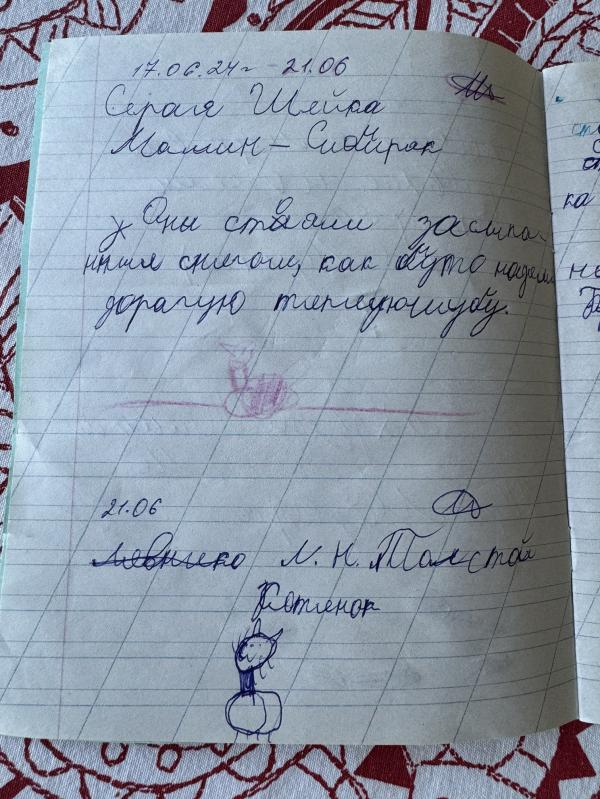 17.06.24г - 21.06
Серая Шейка
Мамин - Сибиряк
Они стояли засыпан
ные снегом, как будто надели
дорогую тёплую шубу.
21.06
Л. Н. Толстой
Котёнок
ка
не